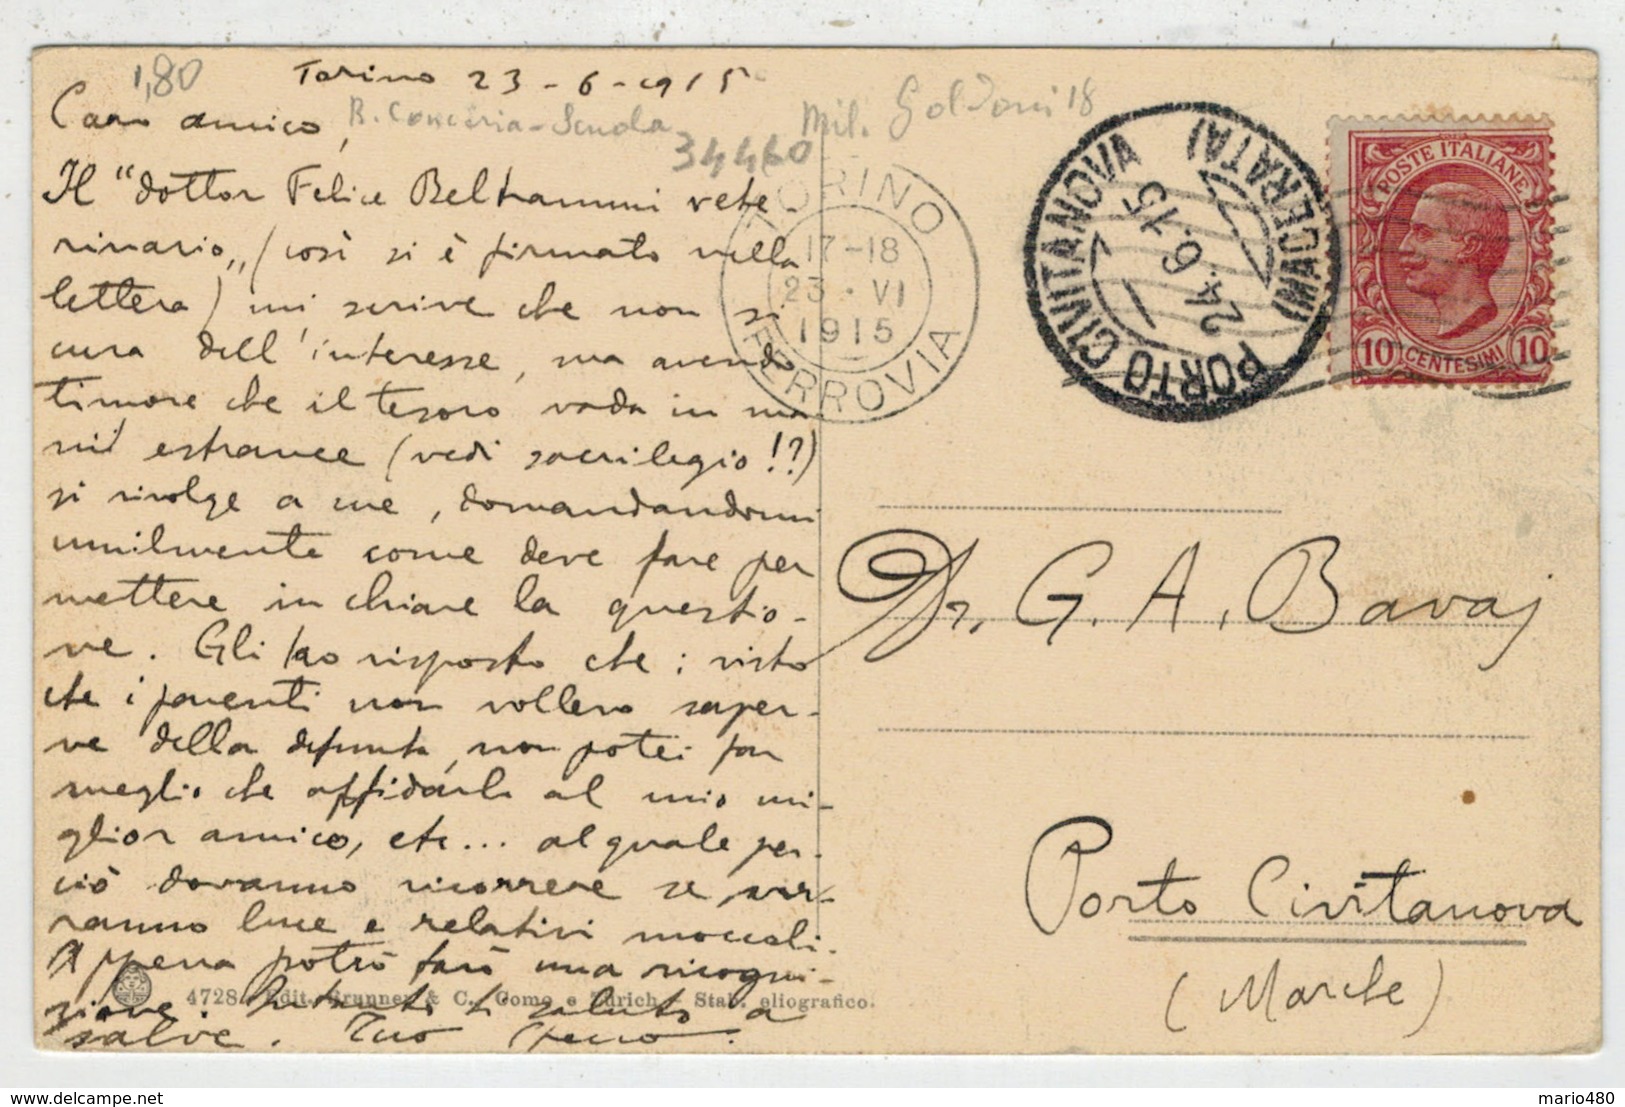 1,80
Torino 23-6-1915
Caro amico,
R. Conceria-Scuola
34460
Mil. Goldoni 18
Il "dottor Felice Beltrammi vete-
rinario„ (così si è firmato nella
lettera) mi scrive che non si
cura dell'interesse, ma avendo
timore che il tesoro vada in ma
ni estranee (vedi sacrilegio!?)
si rivolge a me, domandandomi
umilmente come deve fare per
mettere in chiare la questio-
ne. Gli ho risposto che: visto
che i parenti non vollero saper-
ne della defunta, non potei far
meglio che affidarla al mio mi-
glior amico, etc... al quale per-
ciò dovranno ricorrere se vor-
ranno luce e relativi moccoli.
Appena potrò farò una ricogni-
zione. ti saluto a
salve. Tuo
4728. Edit. Brunner & C., Como e Zürich - Stab. eliografico.
TORINO
17-18
23·VI
1915
FERROVIA
PORTO CIVITANOVA
(MACERATA)
24.6.15
POSTE ITALIANE
10 CENTESIMI 10
Dr. G. A. Bavaj
Porto Civitanova
(Marche)
mario480
https://www.delcampe.net